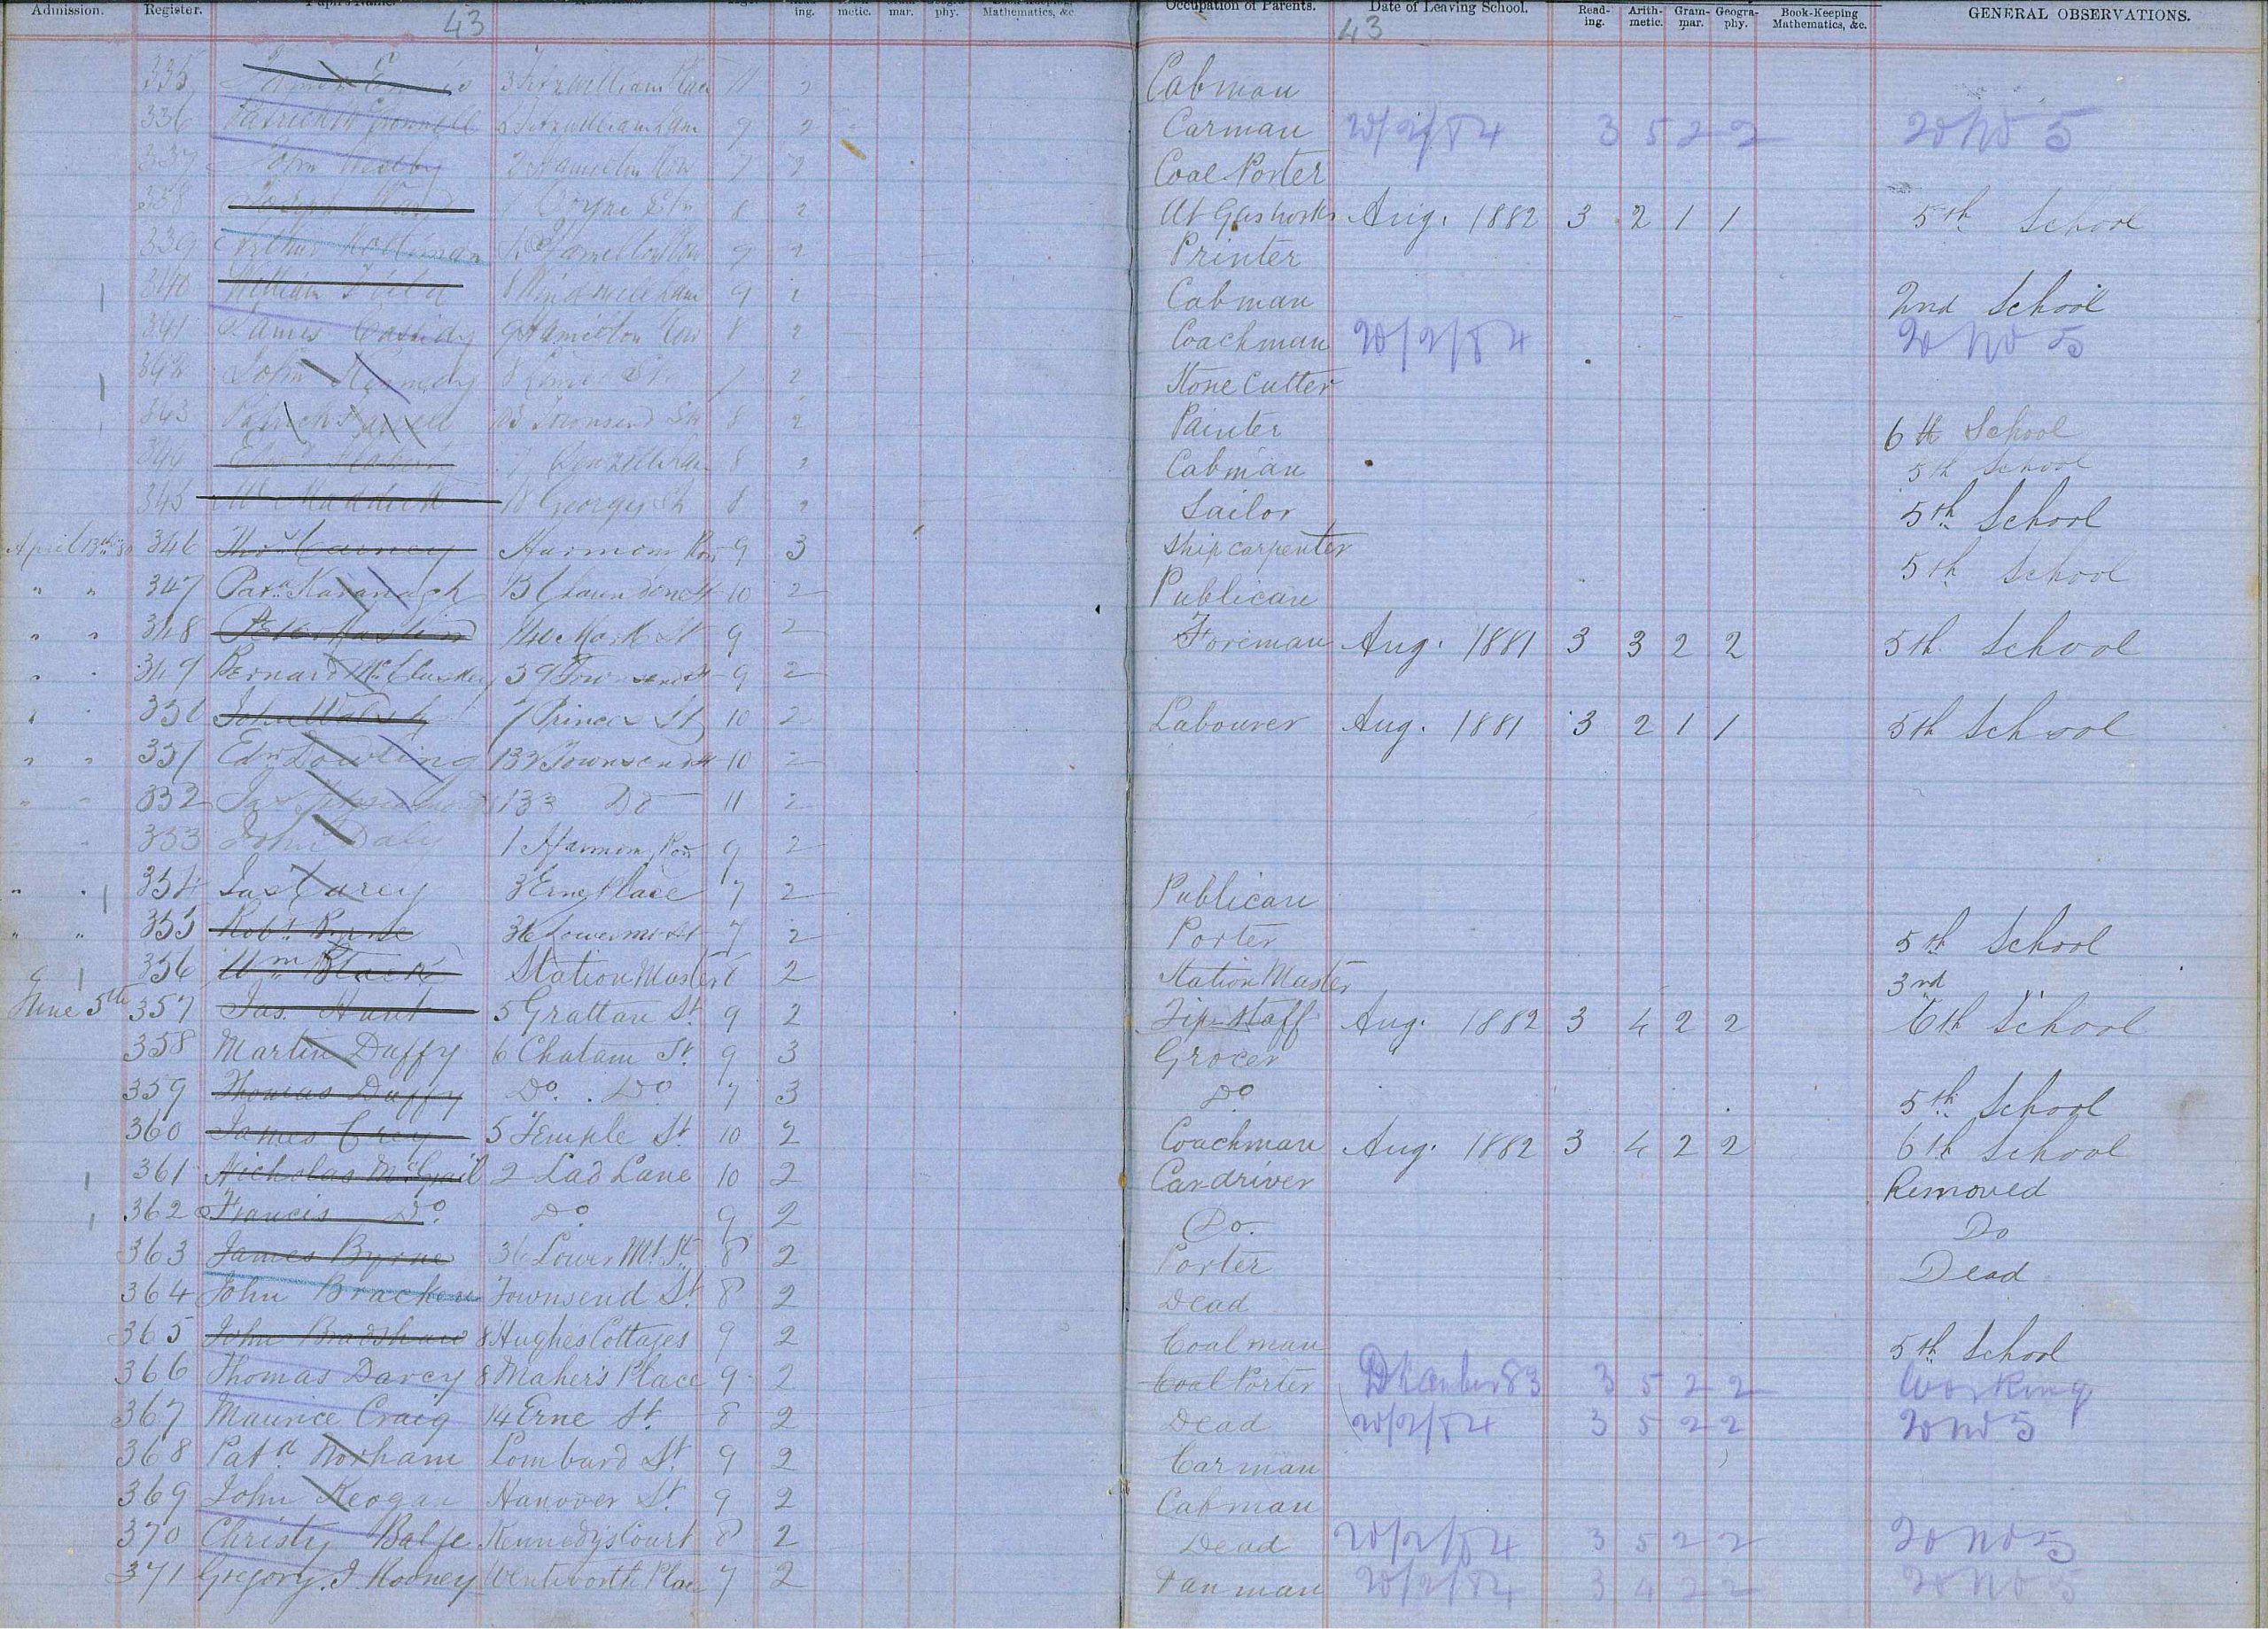 Admission. Register. Pupil's Name. 43 ing. metic. mar. phy. Mathematics, &c. Occupation of Parents. Date of Leaving School. 43 Read-ing. Arith-metic. Gram-mar. Geogra-phy. Book-Keeping Mathematics, &c. GENERAL OBSERVATIONS.
335 3 Fitzwilliam Lane 11 2 Cabman
336 2 Fitzwilliam Lane 9 2 Carman 20/2/84 3 5 2 2 to No 5
337 John 2 Hamilton Row 7 2 Coal Porter
338 Joseph Ward Boyne St 8 2 At Gasworks Aug. 1882 3 2 1 1 5th School
339 Arthur Hamilton Row 9 2 Printer
340 William Field 8 Windmill Lane 9 2 Cabman 2nd School
341 James Cassidy 9 Hamilton Row 8 2 Coachman 20/2/84 to No 5
342 John Kennedy 8 St. 7 2 Stone Cutter
343 Patrick Farrell Townsend St 8 2 Painter 6th School
344 Denzille Lane 8 2 Cabman 5th School
345 18 Georges St 8 2 Sailor 5th School
April 13th 80 346 Thos Carney Harmony Row 9 3 Ship carpenter 5th School
" " 347 Patk Kavanagh 10 2 Publican
" " 348 Mark St 9 2 Foreman Aug. 1881 3 3 2 2 5th School
" " 349 Bernard McCluskey 39 Townsend St 9 2
" " 350 John Walsh 7 Princes St 10 2 Labourer Aug. 1881 3 2 1 1 5th School
" " 351 Edw Dowling 133 Townsend St 10 2
" " 352 133 Do 11 2
" " 353 John Daly 1 Harmony Row 9 2
" " 354 Jas Carey 3 Erne Place 7 2 Publican
" " 355 Robt Byrne 36 Lower Mt St 7 2 Porter 5th School
356 Wm Black Station Master 8 2 Station Master 3rd "
June 5th 357 Jas. Hunt 5 Grattan St. 9 2 Tip-staff Aug. 1882 3 4 2 2 6th School
358 Martin Duffy 6 Chatam St. 9 3 Grocer
359 Thomas Duffy Do. Do 7 3 Do 5th School
360 James Grey 5 Temple St 10 2 Coachman Aug. 1882 3 4 2 2 6th School
361 Nicholas McGrail 2 Lad Lane 10 2 Car driver Removed
362 Francis Do. Do 9 2 Do. Do
363 James Byrne 36 Lower Mt. St. 8 2 Porter Dead
364 John Bracken Townsend St. 8 2 Dead
365 John Bradshaw 8 Hughes Cottages 9 2 Coal man 5th School
366 Thomas Darcy 8 Maher's Place 9 2 Coal Porter December 83 3 5 2 2 Working
367 Maurice Craig 14 Erne St. 8 2 Dead 20/2/84 3 5 2 2 to No 5
368 Patk Norham Lombard St. 9 2 Carman
369 John Keogan Hanover St. 9 2 Cabman
370 Christy Balfe Kennedy's Court 8 2 Dead 20/2/84 3 5 2 2 to No 5
371 Gregory J. Rooney Wentworth Place 7 2 Van man 20/2/84 3 4 2 2 to No 5